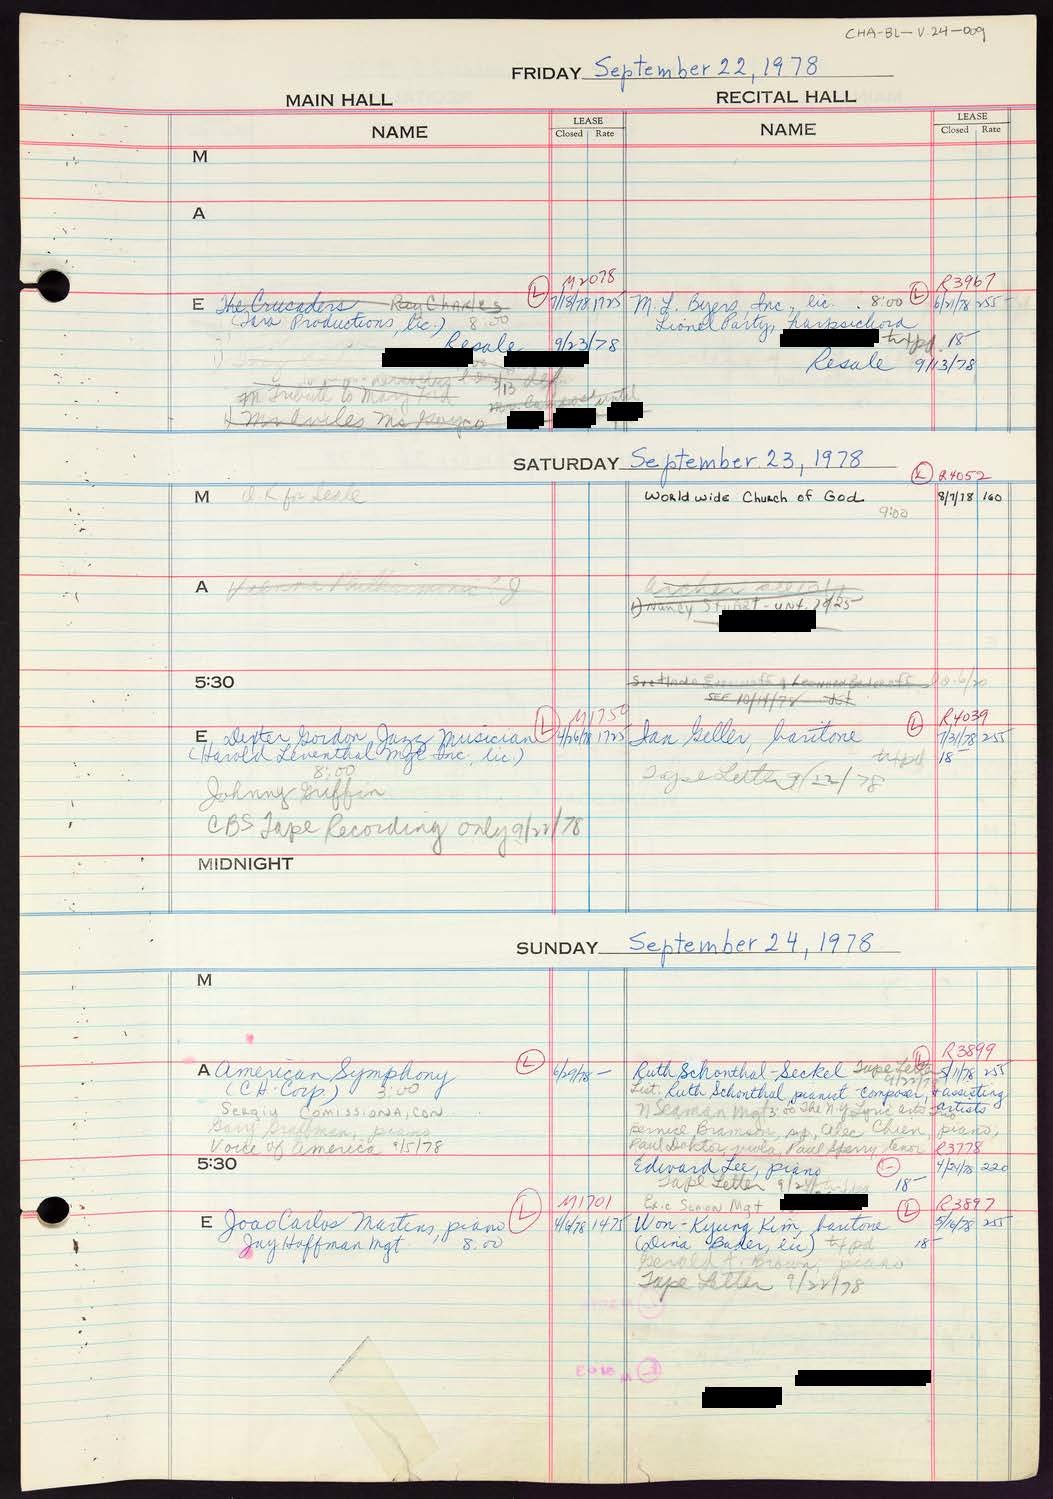 CHA-BL-V.24-009
FRIDAY September 22, 1978
MAIN HALL
RECITAL HALL
NAME
LEASE
Closed Rate
NAME
LEASE
Closed Rate
M
A
M2078
R3967
E The Crusaders Ray Charles L 7/18/78 1725
(Tara Productions, lic.) 8:00
Resale 9/23/78
M. L. Byers, Inc., lic. 8:00 L 6/21/78 255-
Lionel Party, harpsichord
txpd. 18-
Resale 9/13/78
m Tribute to Mary
SATURDAY September 23, 1978
L R4052
M O.K for Lesle
World wide Church of God 8/7/78 160
9:00
A Vienna Philharmonic
1) Nancy
5:30
SEE 10/14/78
M1750
R4039
E Dexter Gordon Jazz Musician L 4/26/78 1725
(Harold Leventhal Mgt Inc, lic.)
8:00
Johnny Griffin
CBS Tape Recording only 9/22/78
Ian Geller, baritone L 7/31/78 255
txpd 18-
Tape Letter 9/22/78
MIDNIGHT
SUNDAY September 24, 1978
M
R3899
A American Symphony L 6/29/78 -
(C.H. Corp) 3:00
Sergiu Comissiona, con
Gary Graffman, piano
Voice of America 9/5/78
Ruth Schonthal-Seckel Tape Letter L 5/1/78 255
9/22/78
List. Ruth Schonthal pianist-composer, & assisting
N Seaman Mgt 3:00 The N.Y Lyric arts Trio artists
Bernice Bramson, sop, Alec Chien, piano,
Paul Doktor, viola, Paul Sperry, tenor R3778
5:30
Edward Lee, piano L 4/24/78 220
Tape Letter 18-
Eric Semon Mgt
M1701
R3897
E Joao Carlos Martins, piano L 4/6/78 1475
Jay Hoffman Mgt 8:00
Won-Kyung Kim, baritone L 5/16/78 255
(Dina Bader, lic) txpd 18-
Gerald F. Brown, piano
Tape Letter 9/22/78